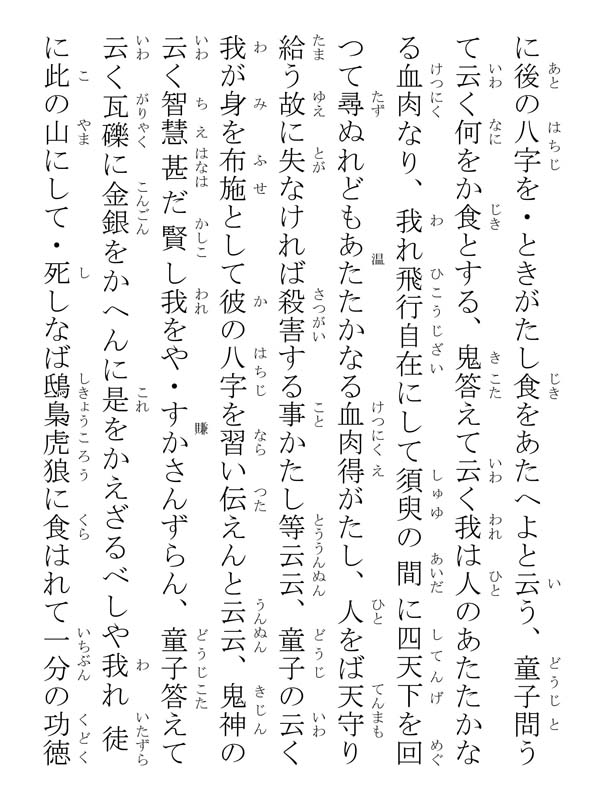 に後の八字を・ときがたし食をあたへよと云う、童子問う
て云く何をか食とする、鬼答えて云く我は人のあたたかな
る血肉なり、我れ飛行自在にして須臾の間に四天下を回
つて尋ぬれどもあたたかなる血肉得がたし、人をば天守り
給う故に失なければ殺害する事かたし等云云、童子の云く
我が身を布施として彼の八字を習い伝えんと云云、鬼神の
云く智慧甚だ賢し我をや・すかさんずらん、童子答えて
云く瓦礫に金銀をかへんに是をかえざるべしや我れ徒
に此の山にして・死しなば鴟梟虎狼に食はれて一分の功徳